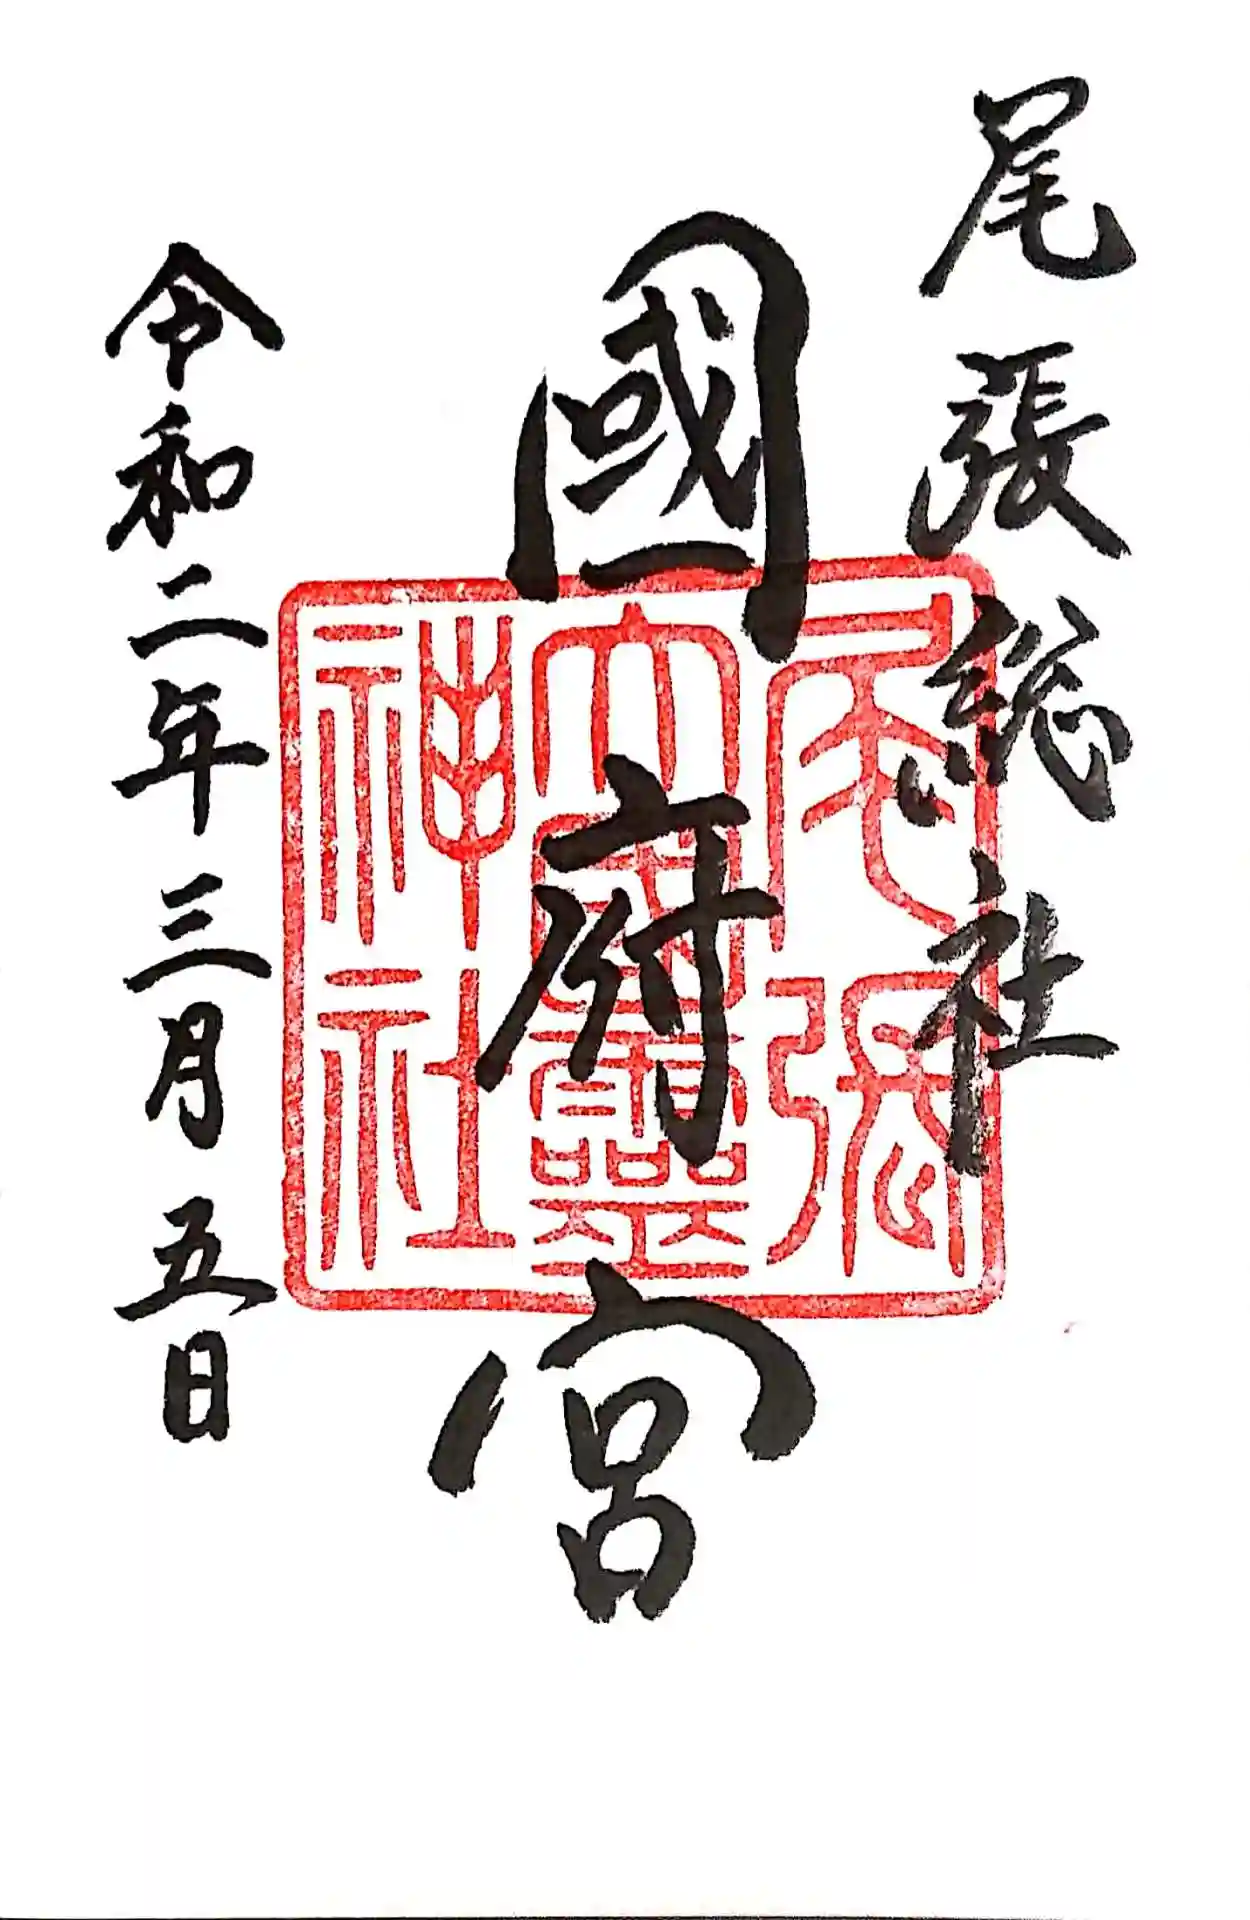 尾張総社
國府宮
尾張
大國霊
神社
令和二年三月五日